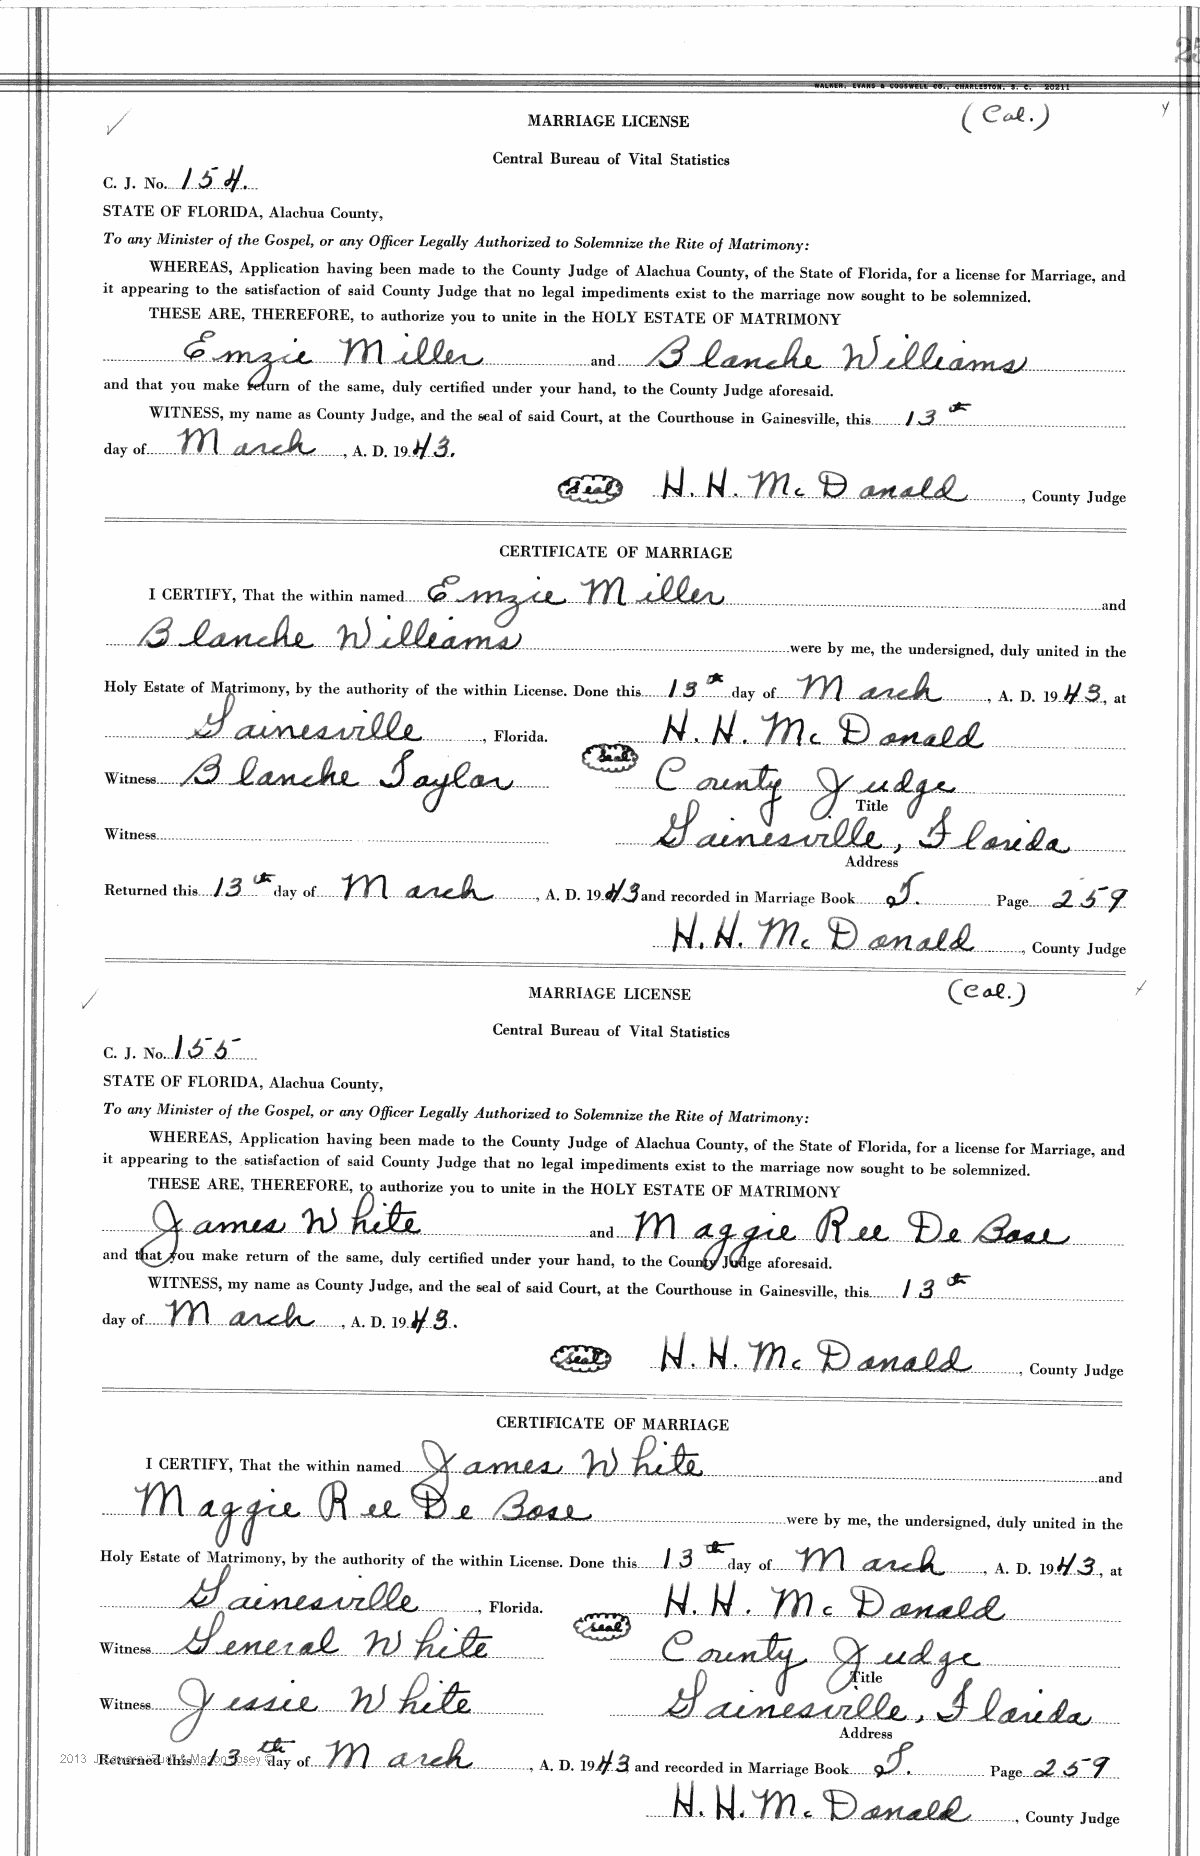 WALKER, EVANS & COGSWELL CO., CHARLESTON, S. C. 20211
MARRIAGE LICENSE (Cal.)
Central Bureau of Vital Statistics
C. J. No. 154.
STATE OF FLORIDA, Alachua County,
To any Minister of the Gospel, or any Officer Legally Authorized to Solemnize the Rite of Matrimony:
WHEREAS, Application having been made to the County Judge of Alachua County, of the State of Florida, for a license for Marriage, and
it appearing to the satisfaction of said County Judge that no legal impediments exist to the marriage now sought to be solemnized.
THESE ARE, THEREFORE, to authorize you to unite in the HOLY ESTATE OF MATRIMONY
Emzie Miller and Blanche Williams
and that you make return of the same, duly certified under your hand, to the County Judge aforesaid.
WITNESS, my name as County Judge, and the seal of said Court, at the Courthouse in Gainesville, this 13th
day of March, A. D. 1943.
Seal H. H. McDonald, County Judge
CERTIFICATE OF MARRIAGE
I CERTIFY, That the within named Emzie Miller and
Blanche Williams were by me, the undersigned, duly united in the
Holy Estate of Matrimony, by the authority of the within License. Done this 13th day of March, A. D. 1943, at
Gainesville, Florida. H. H. McDonald
seal
Witness Blanche Taylor County Judge
Title
Witness Gainesville, Florida
Address
Returned this 13th day of March, A. D. 1943 and recorded in Marriage Book S. Page 259
H. H. McDonald, County Judge
MARRIAGE LICENSE (Cal.)
Central Bureau of Vital Statistics
C. J. No. 155
STATE OF FLORIDA, Alachua County,
To any Minister of the Gospel, or any Officer Legally Authorized to Solemnize the Rite of Matrimony:
WHEREAS, Application having been made to the County Judge of Alachua County, of the State of Florida, for a license for Marriage, and
it appearing to the satisfaction of said County Judge that no legal impediments exist to the marriage now sought to be solemnized.
THESE ARE, THEREFORE, to authorize you to unite in the HOLY ESTATE OF MATRIMONY
James White and Maggie Ree De Bose
and that you make return of the same, duly certified under your hand, to the County Judge aforesaid.
WITNESS, my name as County Judge, and the seal of said Court, at the Courthouse in Gainesville, this 13th
day of March, A. D. 1943.
seal H. H. McDonald, County Judge
CERTIFICATE OF MARRIAGE
I CERTIFY, That the within named James White and
Maggie Ree De Bose were by me, the undersigned, duly united in the
Holy Estate of Matrimony, by the authority of the within License. Done this 13th day of March, A. D. 1943, at
Gainesville, Florida. H. H. McDonald
seal
Witness General White County Judge
Title
Witness Jessie White Gainesville, Florida
Address
Returned this 13th day of March, A. D. 1943 and recorded in Marriage Book S. Page 259
H. H. McDonald, County Judge